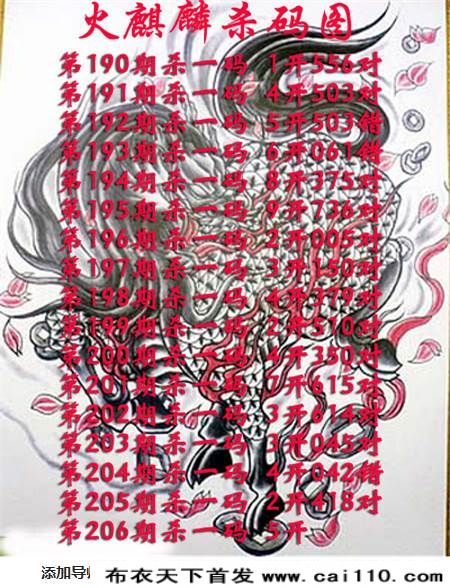 火麒麟杀码图
第190期杀一码 1开556对
第191期杀一码 4开503对
第192期杀一码 5开503错
第193期杀一码 6开061错
第194期杀一码 8开375对
第195期杀一码 9开736对
第196期杀一码 2开005对
第197期杀一码 3开150对
第198期杀一码 4开379对
第199期杀一码 2开510对
第200期杀一码 4开350对
第201期杀一码 7开615对
第202期杀一码 3开614对
第203期杀一码 3开045对
第204期杀一码 4开042错
第205期杀一码 2开418对
第206期杀一码 5开
添加导 布衣天下首发 www.cai110.com